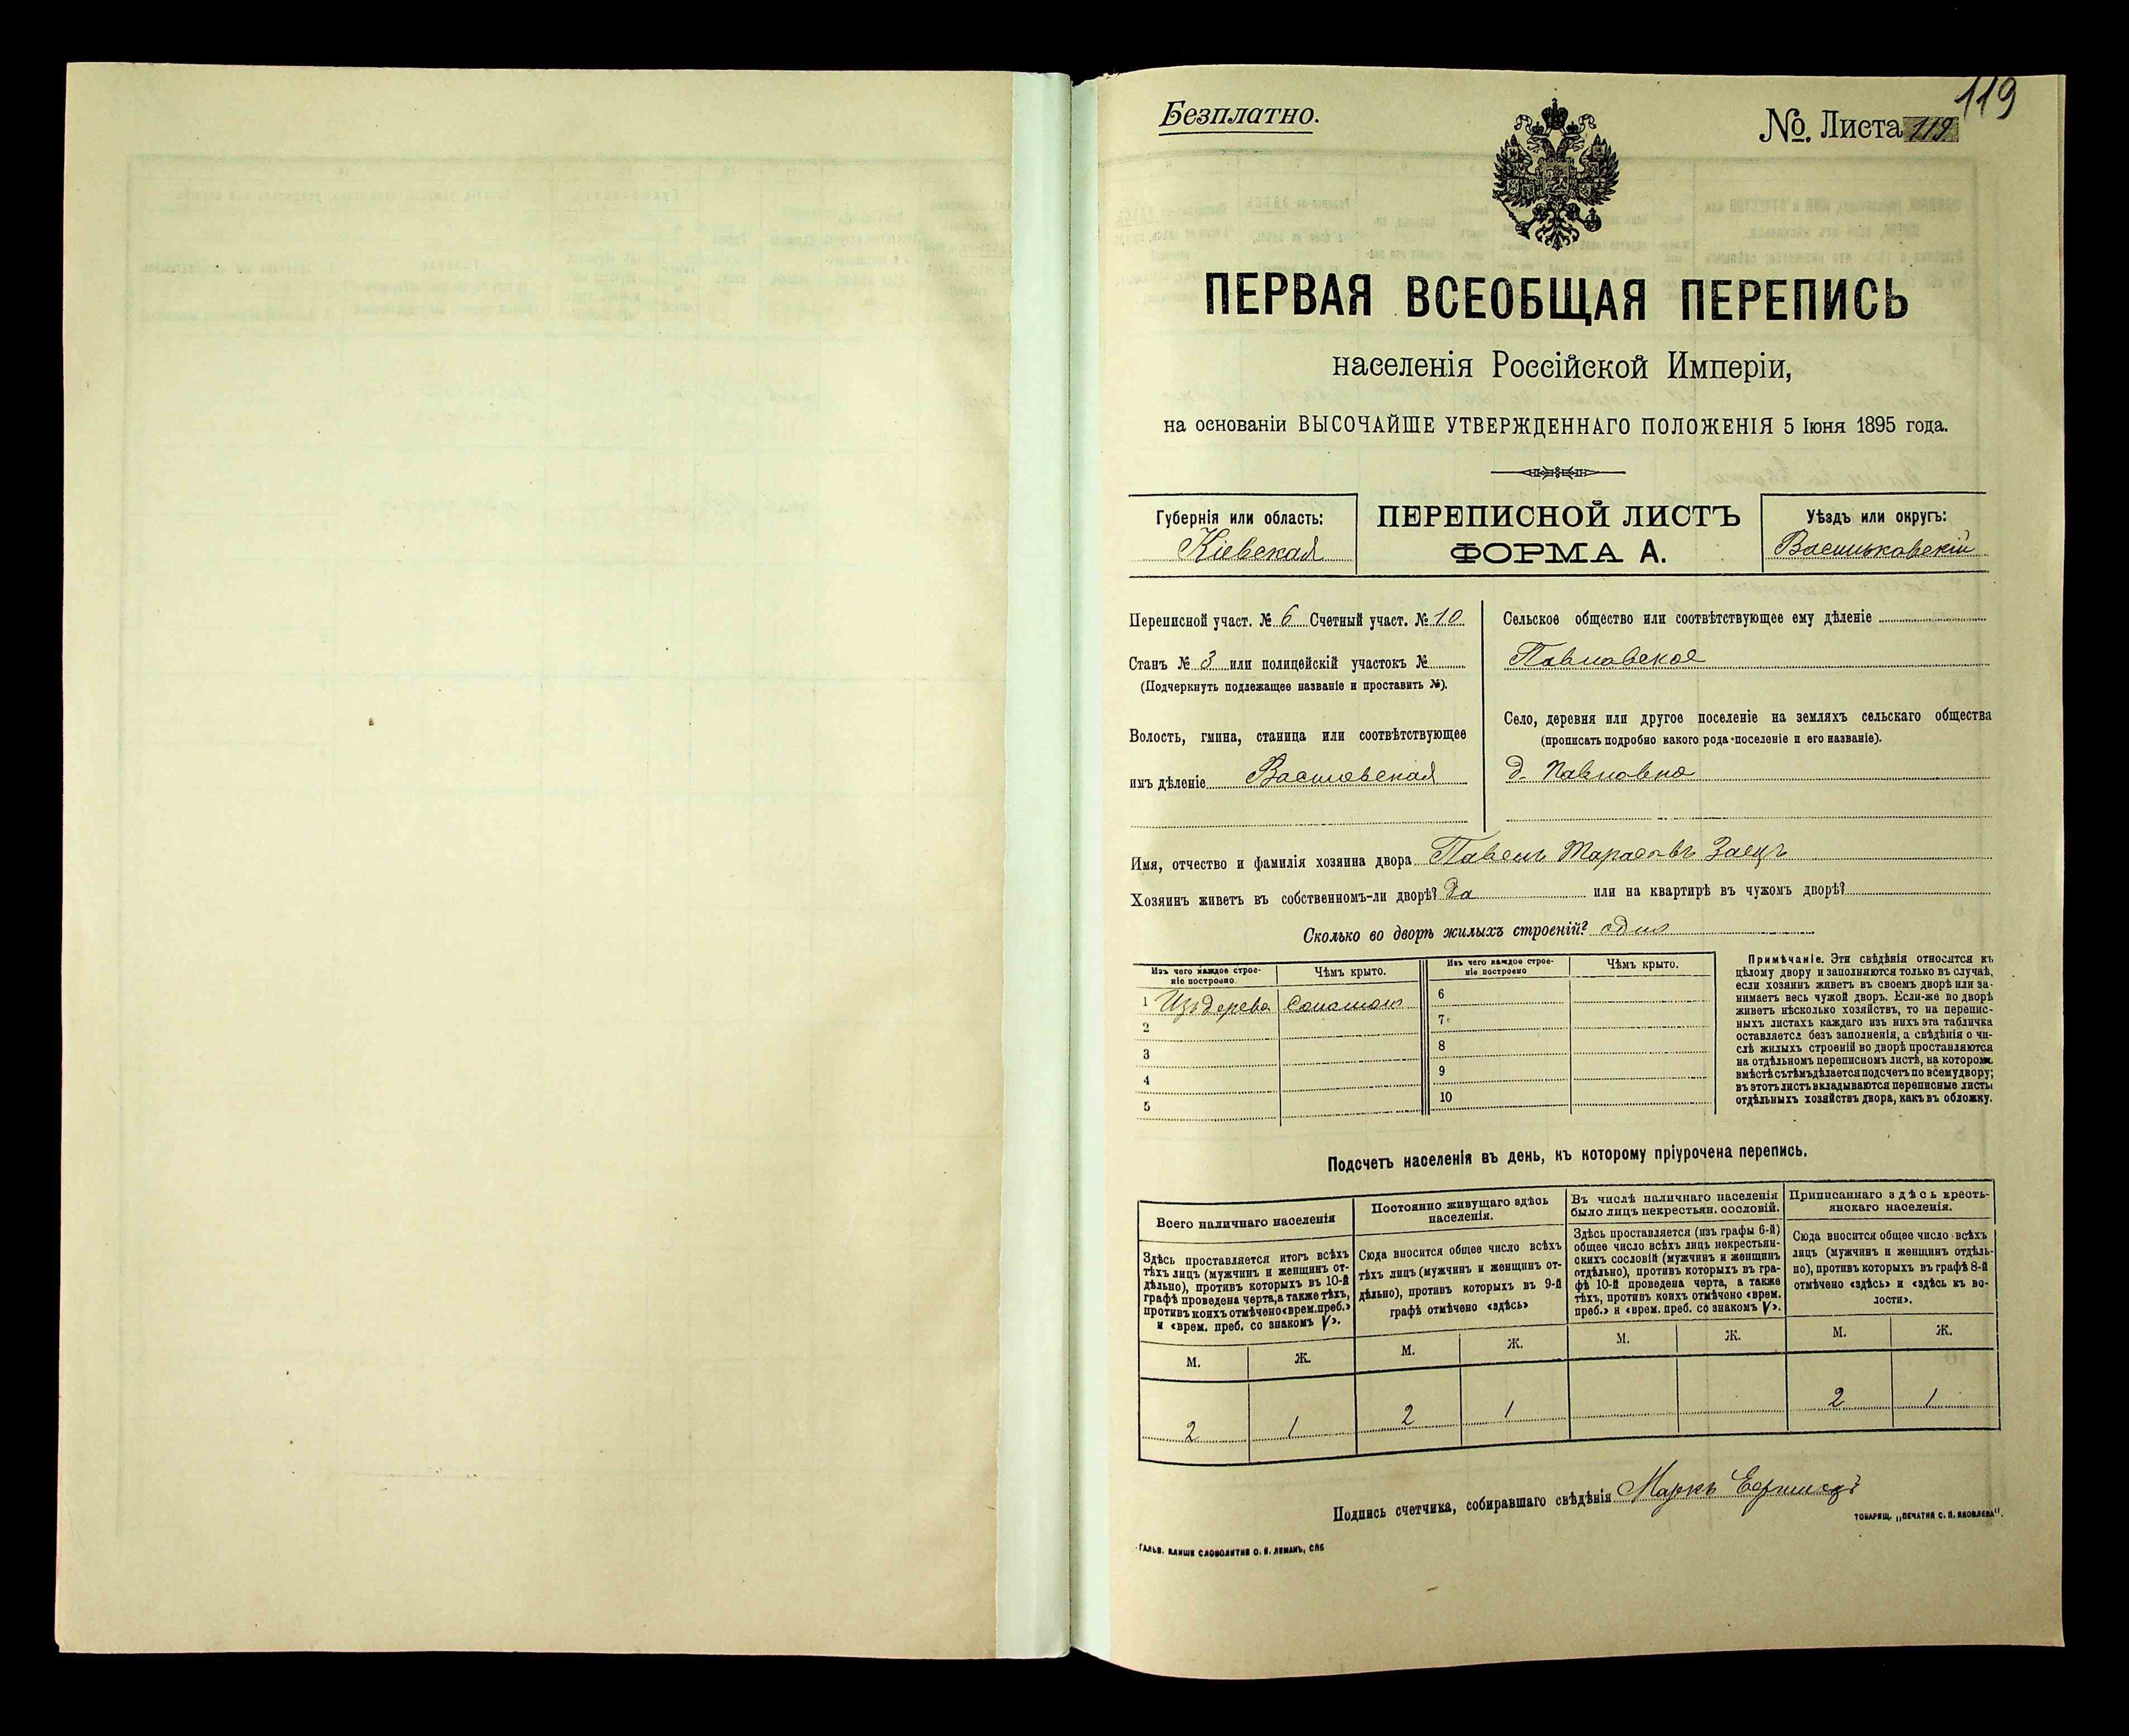 119
Безплатно.
№ Листа 119
ПЕРВАЯ ВСЕОБЩАЯ ПЕРЕПИСЬ
населенія Россійской Имперіи,
на основаніи ВЫСОЧАЙШЕ УТВЕРЖДЕННАГО ПОЛОЖЕНІЯ 5 Іюня 1895 года.
Губернія или область:
Кіевская
ПЕРЕПИСНОЙ ЛИСТЪ
ФОРМА А.
Уѣздъ или округъ:
Васильковскій
Переписной участ. № 6 Счетный участ. № 10
Станъ № 3 или полицейскій участокъ №
(Подчеркнуть подлежащее названіе и проставить №).
Волость, гмина, станица или соотвѣтствующее
имъ дѣленіе
Сельское общество или соотвѣтствующее ему дѣленіе
Павловское
Село, деревня или другое поселеніе на земляхъ сельскаго общества
(прописать подробно какого рода поселеніе и его названіе).
д. Павловка
Имя, отчество и фамилія хозяина двора Павелъ Тарасовъ Заецъ
Хозяинъ живетъ въ собственномъ-ли дворѣ? Да или на квартирѣ въ чужомъ дворѣ?
Сколько во дворѣ жилыхъ строеній? одно
Изъ чего каждое строе-
ніе построено.
Чѣмъ крыто.
Изъ чего каждое строе-
ніе построено
Чѣмъ крыто.
1 Изъ дерева Соломою
2
3
4
5
6
7
8
9
10
Примѣчаніе. Эти свѣдѣнія относятся къ
цѣлому двору и заполняются только въ случаѣ,
если хозяинъ живетъ въ своемъ дворѣ или за-
нимаетъ весь чужой дворъ. Если-же во дворѣ
живетъ нѣсколько хозяйствъ, то на перепис-
ныхъ листахъ каждаго изъ нихъ эта табличка
оставляется безъ заполненія, а свѣдѣнія о чи-
слѣ жилыхъ строеній во дворѣ проставляются
на отдѣльномъ переписномъ листѣ, на которомъ
вмѣстѣ съ тѣмъ дѣлается подсчетъ по всему двору;
въ этотъ листъ вкладываются переписные листы
отдѣльныхъ хозяйствъ двора, какъ въ обложку.
Подсчетъ населенія въ день, къ которому пріурочена перепись.
Всего наличнаго населенія
Здѣсь проставляется итогъ всѣхъ
тѣхъ лицъ (мужчинъ и женщинъ от-
дѣльно), противъ которыхъ въ 10-й
графѣ проведена черта, а также тѣхъ,
противъ коихъ отмѣчено «врем. преб.»
и «врем. преб. со знакомъ V».
Постоянно живущаго здѣсь
населенія.
Сюда вносится общее число всѣхъ
тѣхъ лицъ (мужчинъ и женщинъ от-
дѣльно), противъ которыхъ въ 9-й
графѣ отмѣчено «здѣсь»
Въ числѣ наличнаго населенія
было лицъ некрестьян. сословій.
Здѣсь проставляется (изъ графы 6-й)
общее число всѣхъ лицъ некрестьян-
скихъ сословій (мужчинъ и женщинъ
отдѣльно), противъ которыхъ въ гра-
фѣ 10-й проведена черта, а также
тѣхъ, противъ коихъ отмѣчено «врем.
преб.» и «врем. преб. со знакомъ V».
Приписаннаго здѣсь кресть-
янскаго населенія.
Сюда вносится общее число всѣхъ
лицъ (мужчинъ и женщинъ отдѣль-
но), противъ которыхъ въ графѣ 8-й
отмѣчено «здѣсь» и «здѣсь къ во-
лости».
М. Ж. М. Ж. М. Ж. М. Ж.
2 1 2 1 2 1
Подпись счетчика, собиравшаго свѣдѣнія Маркъ
ТОВАРИЩ. „ПЕЧАТНЯ С. П. ЯКОВЛЕВА“.
ГАЛЬВ. КЛИШЕ СЛОВОЛИТНИ О. И. ЛЕМАНЪ, СПБ